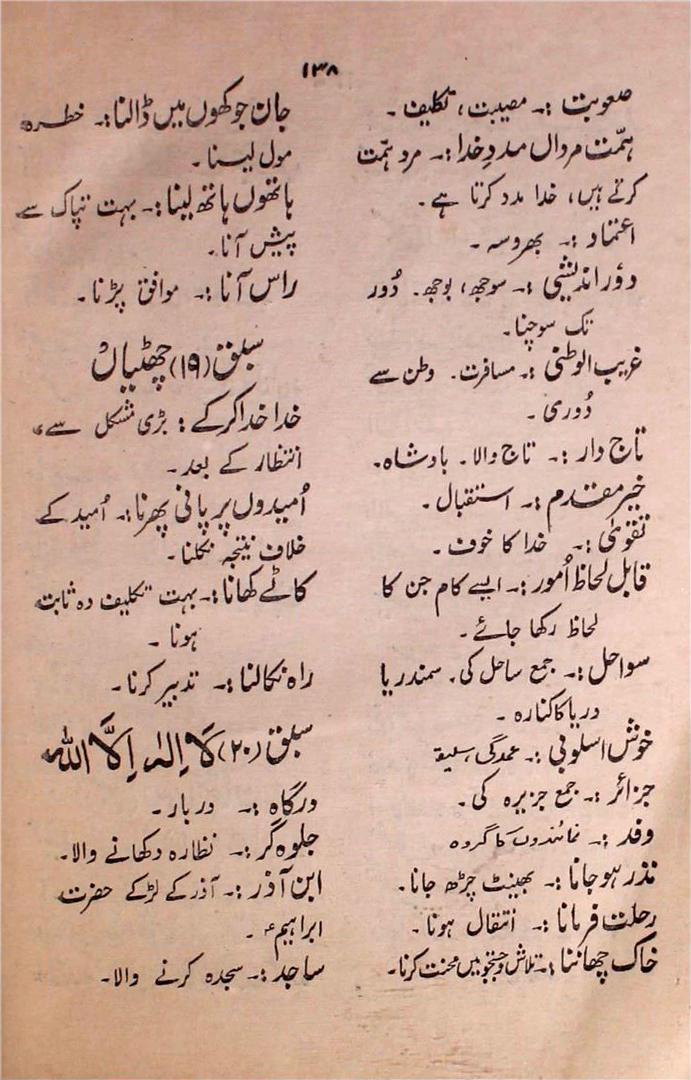 ۱۳۸
صعوبت :۔ مصیبت، تکلیف ۔
ہمّت مرداں مددِ خدا :۔ مرد ہمّت
کرتے ہیں، خدا مدد کرتا ہے ۔
اعتماد :۔ بھروسہ ۔
دُور اندیشی :۔ سوجھ، بوجھ۔ دُور
تک سوچنا۔
غریب الوطنی :۔ مسافرت۔ وطن سے
دُوری ۔
تاج دار :۔ تاج والا۔ بادشاہ۔
خیر مقدم :۔ استقبال ۔
تقویٰ :۔ خدا کا خوف ۔
قابل لحاظ اُمور :۔ ایسے کام جن کا
لحاظ رکھا جائے ۔
سواحل :۔ جمع ساحل کی۔ سمندر یا
دریا کا کنارہ ۔
خوش اسلوبی :۔ عمدگی، سلیقہ
جزائر :۔ جمع جزیرہ کی ۔
وفد :۔ نمائندوں کا گروہ
نذر ہو جانا :۔ بھینٹ چڑھ جانا۔
رحلت فرمانا :۔ انتقال ہونا ۔
خاک چھاننا :۔ تلاش و جستجو میں محنت کرنا۔
جان جوکھوں میں ڈالنا :۔ خطرہ
مول لینا ۔
ہاتھوں ہاتھ لینا :۔ بہت تپاک سے
پیش آنا۔
راس آنا :۔ موافق پڑنا ۔
سبق (۱۹) چھٹیاں
خدا خدا کر کے : بڑی مشکل سے،
انتظار کے بعد ۔
اُمیدوں پر پانی پھرنا :۔ اُمید کے
خلاف نتیجہ نکلنا ۔
کاٹے کھانا :۔ بہت تکلیف دہ ثابت
ہونا ۔
راہ نکالنا :۔ تدبیر کرنا ۔
سبق (۲۰) لَا اِلٰہَ اِلَّا اللہ
درگاہ :۔ دربار ۔
جلوہ گر :۔ نظارہ دکھانے والا۔
ابن آذر :۔ آذر کے لڑکے حضرت
ابراہیمؑ ۔
ساجد :۔ سجدہ کرنے والا۔